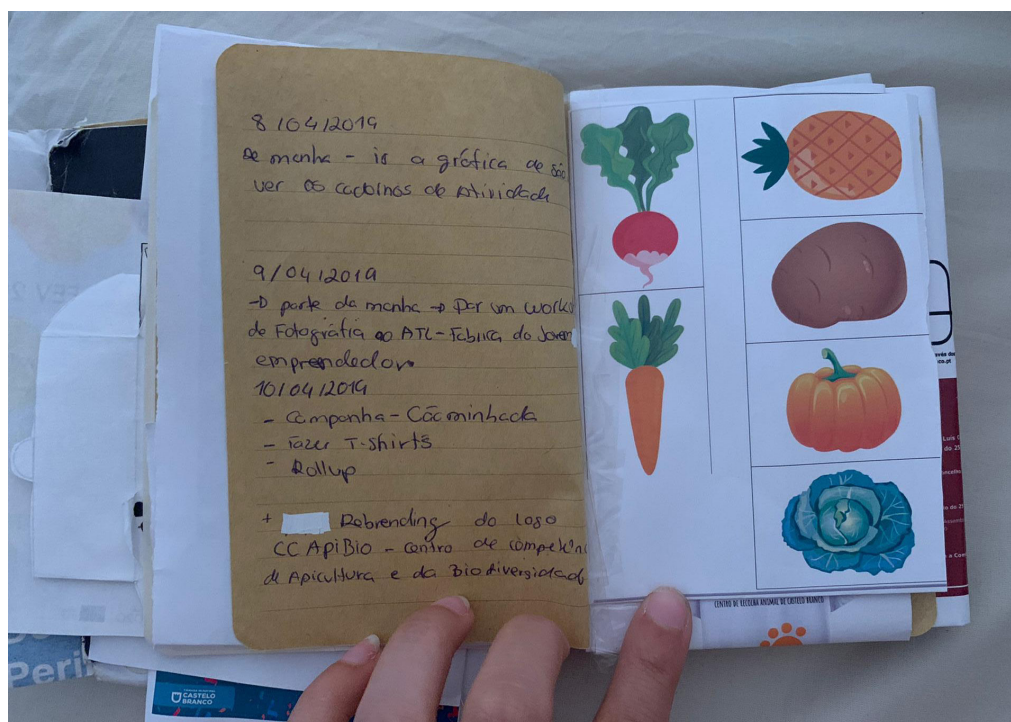 8/04/2019
De manha - ir a gráfica de São
ver os cadernos de Atividade
9/04/2019
→ parte da manha → Dar um work
de Fotográfia ao ATL - Fabrica do Jovem
emprendedor
10/04/2019
- Campanha - Cãominhada
- Fazer T-shirts
- Rollup
+ Rebrending do logo
CC ApiBio - centro de competên
de Apicultura e da Biodivergidad
CENTRO DE RECOLHA ANIMAL DE CASTELO BRANCO
CASTELO
BRANCO
Peri
co.pt
Luis
do 25